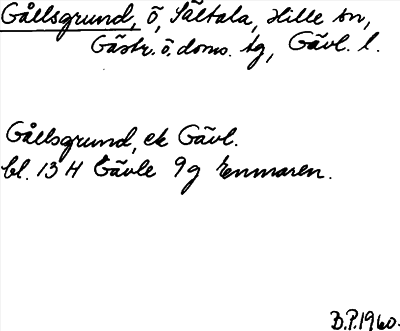 Gållsgrund, ö, Sältala, Hille sn,
Gästr. ö. doms. tg, Gävl. l.
Gållsgrund, ek Gävl.
bl. 13 H Gävle 9g
B.P. 1960.